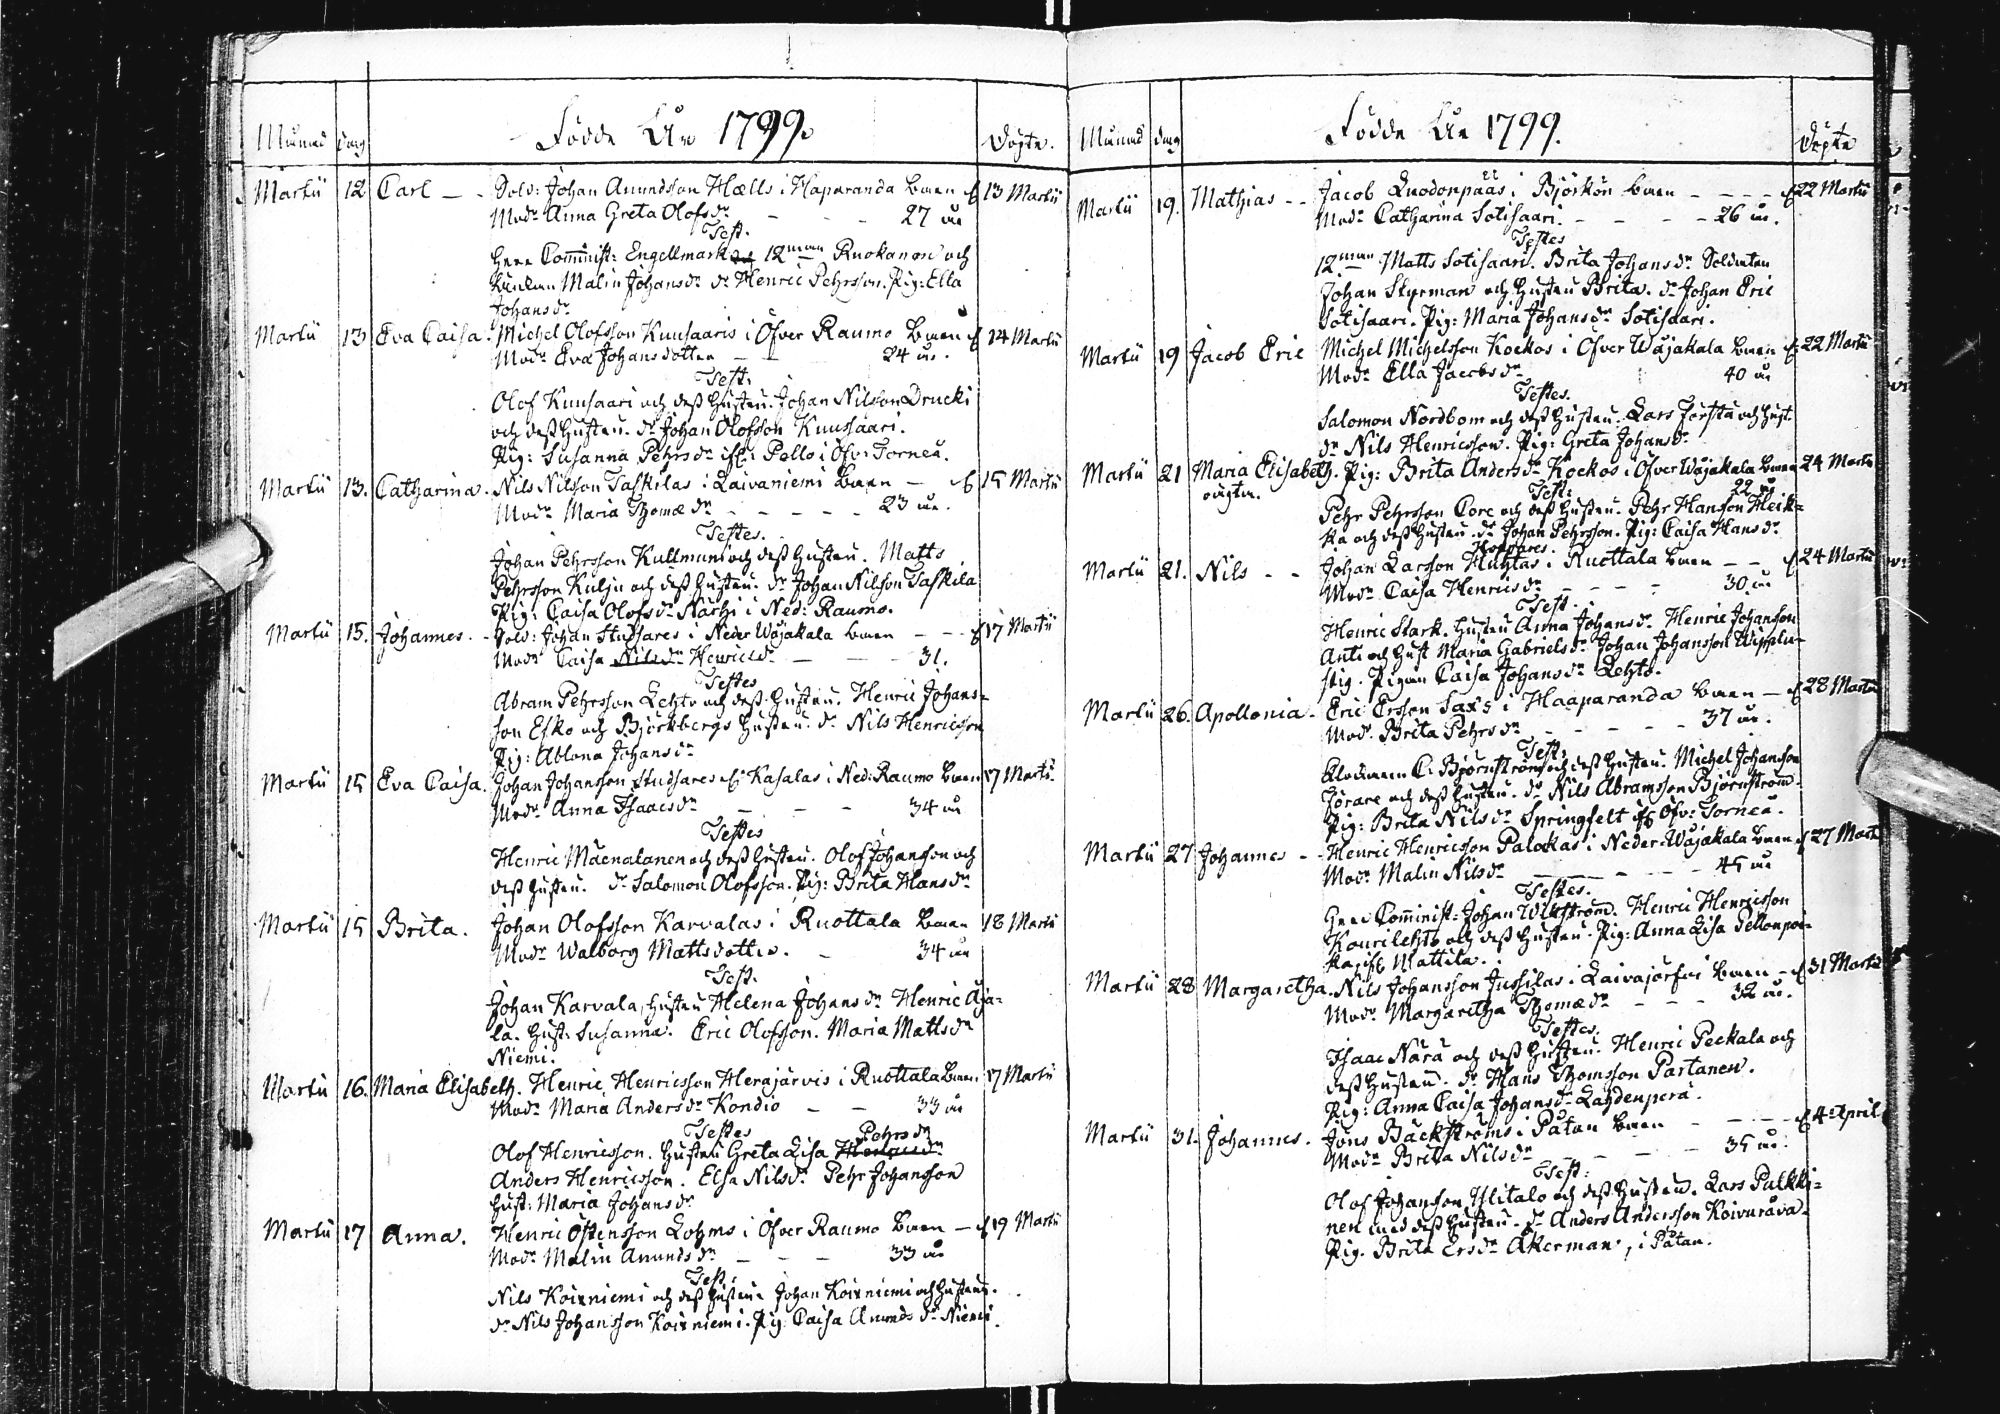 Månad dag Födde År 1799. Döpte.
Martii 12 Carl — - Sold: Johan Amundsson Hælls i Haparanda barn 13 Martii
Modr Anna Greta Olofsdr - - - 27 år
Test.
Herr Comminist: Engellmark 12man Ruokanen och
Malin Johansdr dr Henric Pehrsson. Pig: Ella
Johansdr
Martii 13 Eva Caisa. Michel Olofsson Kuusaaris i Öfver Raumo barn 14 Martii
Modr Eva Johansdotter — 24 år.
Test:
Olof Kuusaari och dess hustru. Johan Nilsson Drucki
och dess hustru. dr Johan Olofsson Kuusaari.
Pig: Susanna Pehrsdr ifr. Pello i Öfv: Torneå.
Martii 13. Catharina. Nils Nilsson Taskilas i Laivaniemi barn — 15 Martii
Modr Maria Thomædr - - - - - 23 år.
Testes.
Johan Pehrsson Kullmuni och dess hustru. Matts
Pehrsson Kulju och dess hustru. dr Johan Nilsson Taskila
Pig: Caisa Olofsdr Närhi i Ned: Raumo.
Martii 15. Johannes. - Sold: Johan Studsares i Neder Wojakala barn - - - 17 Martii
Modr Caisa Nilsdr Henricsdr — — — 31.
Testes
Abram Pehrsson Lehto och dess hustru. Henric Johans=
son Esko och Björkbergs hustru. dr Nils Henricsson
Pig: Ablona Johansdr
Martii 15 Eva Caisa. Johan Johansson Studsares ifr Kasalas i Ned: Raumo barn 17 Marti
Modr Anna Isaacsdr — — — 34 år
Testes
Henric Mäenalanen och dess hustru. Olof Johansson och
dess hustru. dr Salomon Olofsson. Pig: Brita Hansdr
Martii 15 Brita. Johan Olofsson Karvalas i Ruottala barn 18 Martii
Modr Walborg Mattsdotter. - 34 år
Test.
Johan Karvala, hustru Helena Johansdr Henric Aja=
la. Hust: Susanna. Eric Olofsson. Maria Mattsdr
Niemi.
Martii 16. Maria Elisabeth. Henric Henricsson Herajärvis i Ruottala barn 17 Martii
Modr Maria Andersdr Kondio — — 33 år
Testes Pehrsdr
Olof Henricsson. hustru Greta Lisa Henricsdr
Anders Henricsson. Elsa Nilsdr Pehr Johansson
hust: Maria Johansdr
Martii 17 Anna. Henric Östensson Lohms i Öfver Raumo barn — 19 Martii
Modr Malin Amundsdr — — — 33 år
Test:
Nils Koivniemi och dess hustru. Johan Koivniemi och hustru.
dr Nils Johansson Koivniemi. Pig Caisa Amundsdr Niemi.
Månad dag Födde År 1799. Döpte
Martii 19. Mathias - - Jacob Luodonpääs i Björkön barn - - - - 22 Martii
Modr Catharina Sotisaari. - - - - - 26 år.
Testes
12man Matts Sotisaari. Brita Johansdr Soldaten
Johan Styrman och hustru Brita. dr Johan Eric
Sotisaari. Pig: Maria Johansdr Sotisaari.
Martii 19 Jacob Eric Michel Michelsson Koekos i Öfver Wojakala barn 22 Martii
Modr Ella Jacobsdr 40 år
Testes.
Salomon Nordbom och dess hustru. Lars Forstu och hust
dr Nils Henricsson. Pig: Greta Johansdr
Martii 21 Maria Elisabeth. Pig: Brita Andersdr Koekos i Öfver Wojakala barn 24 Martii
oägta. Test: 22 år
Pehr Pehrsson Core och dess hustru. Pehr Hansson Heik=
ka och dess hustru. dr Johan Pehrsson. Pig: Caisa Hansdr
Martii 21. Nils - - Johan Larsson Huhtas i Ruottala barn - - 24 Martii
Modr Caisa Henricsdr - - - - 30 år
Test.
Henric Stark. hustru Anna Johansdr. Henric Johansson
Anti och hust Maria Gabrielsdr Johan Johansson
Pigan Caisa Johansdr Lehto.
Martii 26. Apollonia. - Eric Ersson Sax's i Haaparanda barn — 28 Martii
Modr. Brita Pehrsdr - - - - - 37 år.
Test:
Klockaren C: Björnström och dess hustru. Michel Johansson
Jörare och dess hustru. dr Nils Abramsson Björnström.
Pig: Brita Nilsdr Springfelt ifr Öfv: Torneå.
Martii 27 Johannes - - Henric Henricsson Palokas i Neder Wojakala barn 27 Marti
Modr Malin Nilsdr - - - - - 45 år
Testes.
Herr Comminist: Johan Wikström. Henric Henricsson
Kourilehto och dess hustru. Pig: Anna Lisa Pellonpä=
ifr Mattila.
Martii 28 Margaretha. Nils Johansson Jussilas i Laivajärfvi barn - 31 Martii
Modr Margaretha Thomædr - - - 32 år.
Testes.
Isaac Närä och dess hustru. Henric Peckala och
dess hustru. dr Hans Thomsson Partanen.
Pig: Anna Caisa Johansdr Lahdenperä.
Martii 31. Johannes. Jöns Bäckströms i Påtan barn - - - - 4 April
Modr Brita Nilsdr - - - - 35 år.
Test:
Olof Johansson Ylitalo och dess hustru. Lars Palkki=
nen med dess hustru. dr Anders Andersson Koivuråva.
Pig. Brita Ersdr Åkerman, i Påtan.